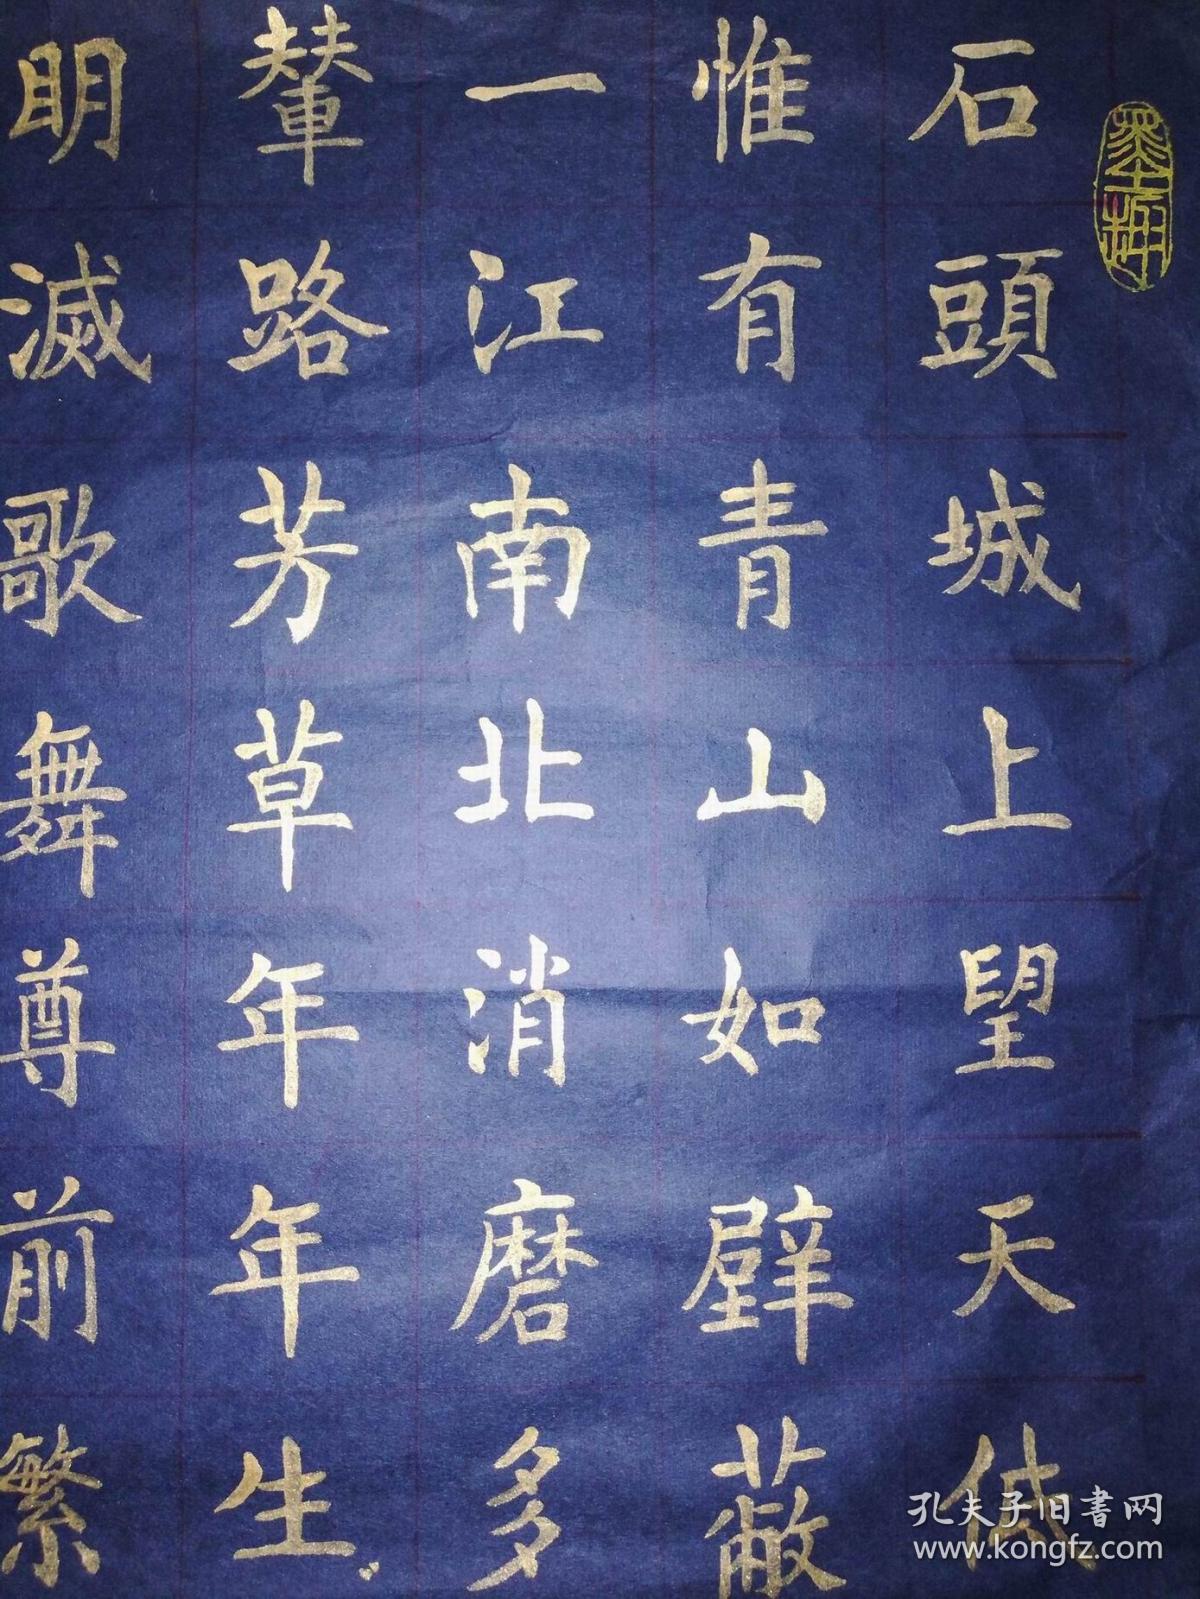 墨趣
石頭城上望天低
惟有青山如壁蔽
一江南北消磨多
輦路芳草年年生
明滅歌舞尊前繁
孔夫子旧書网
www.kongfz.com